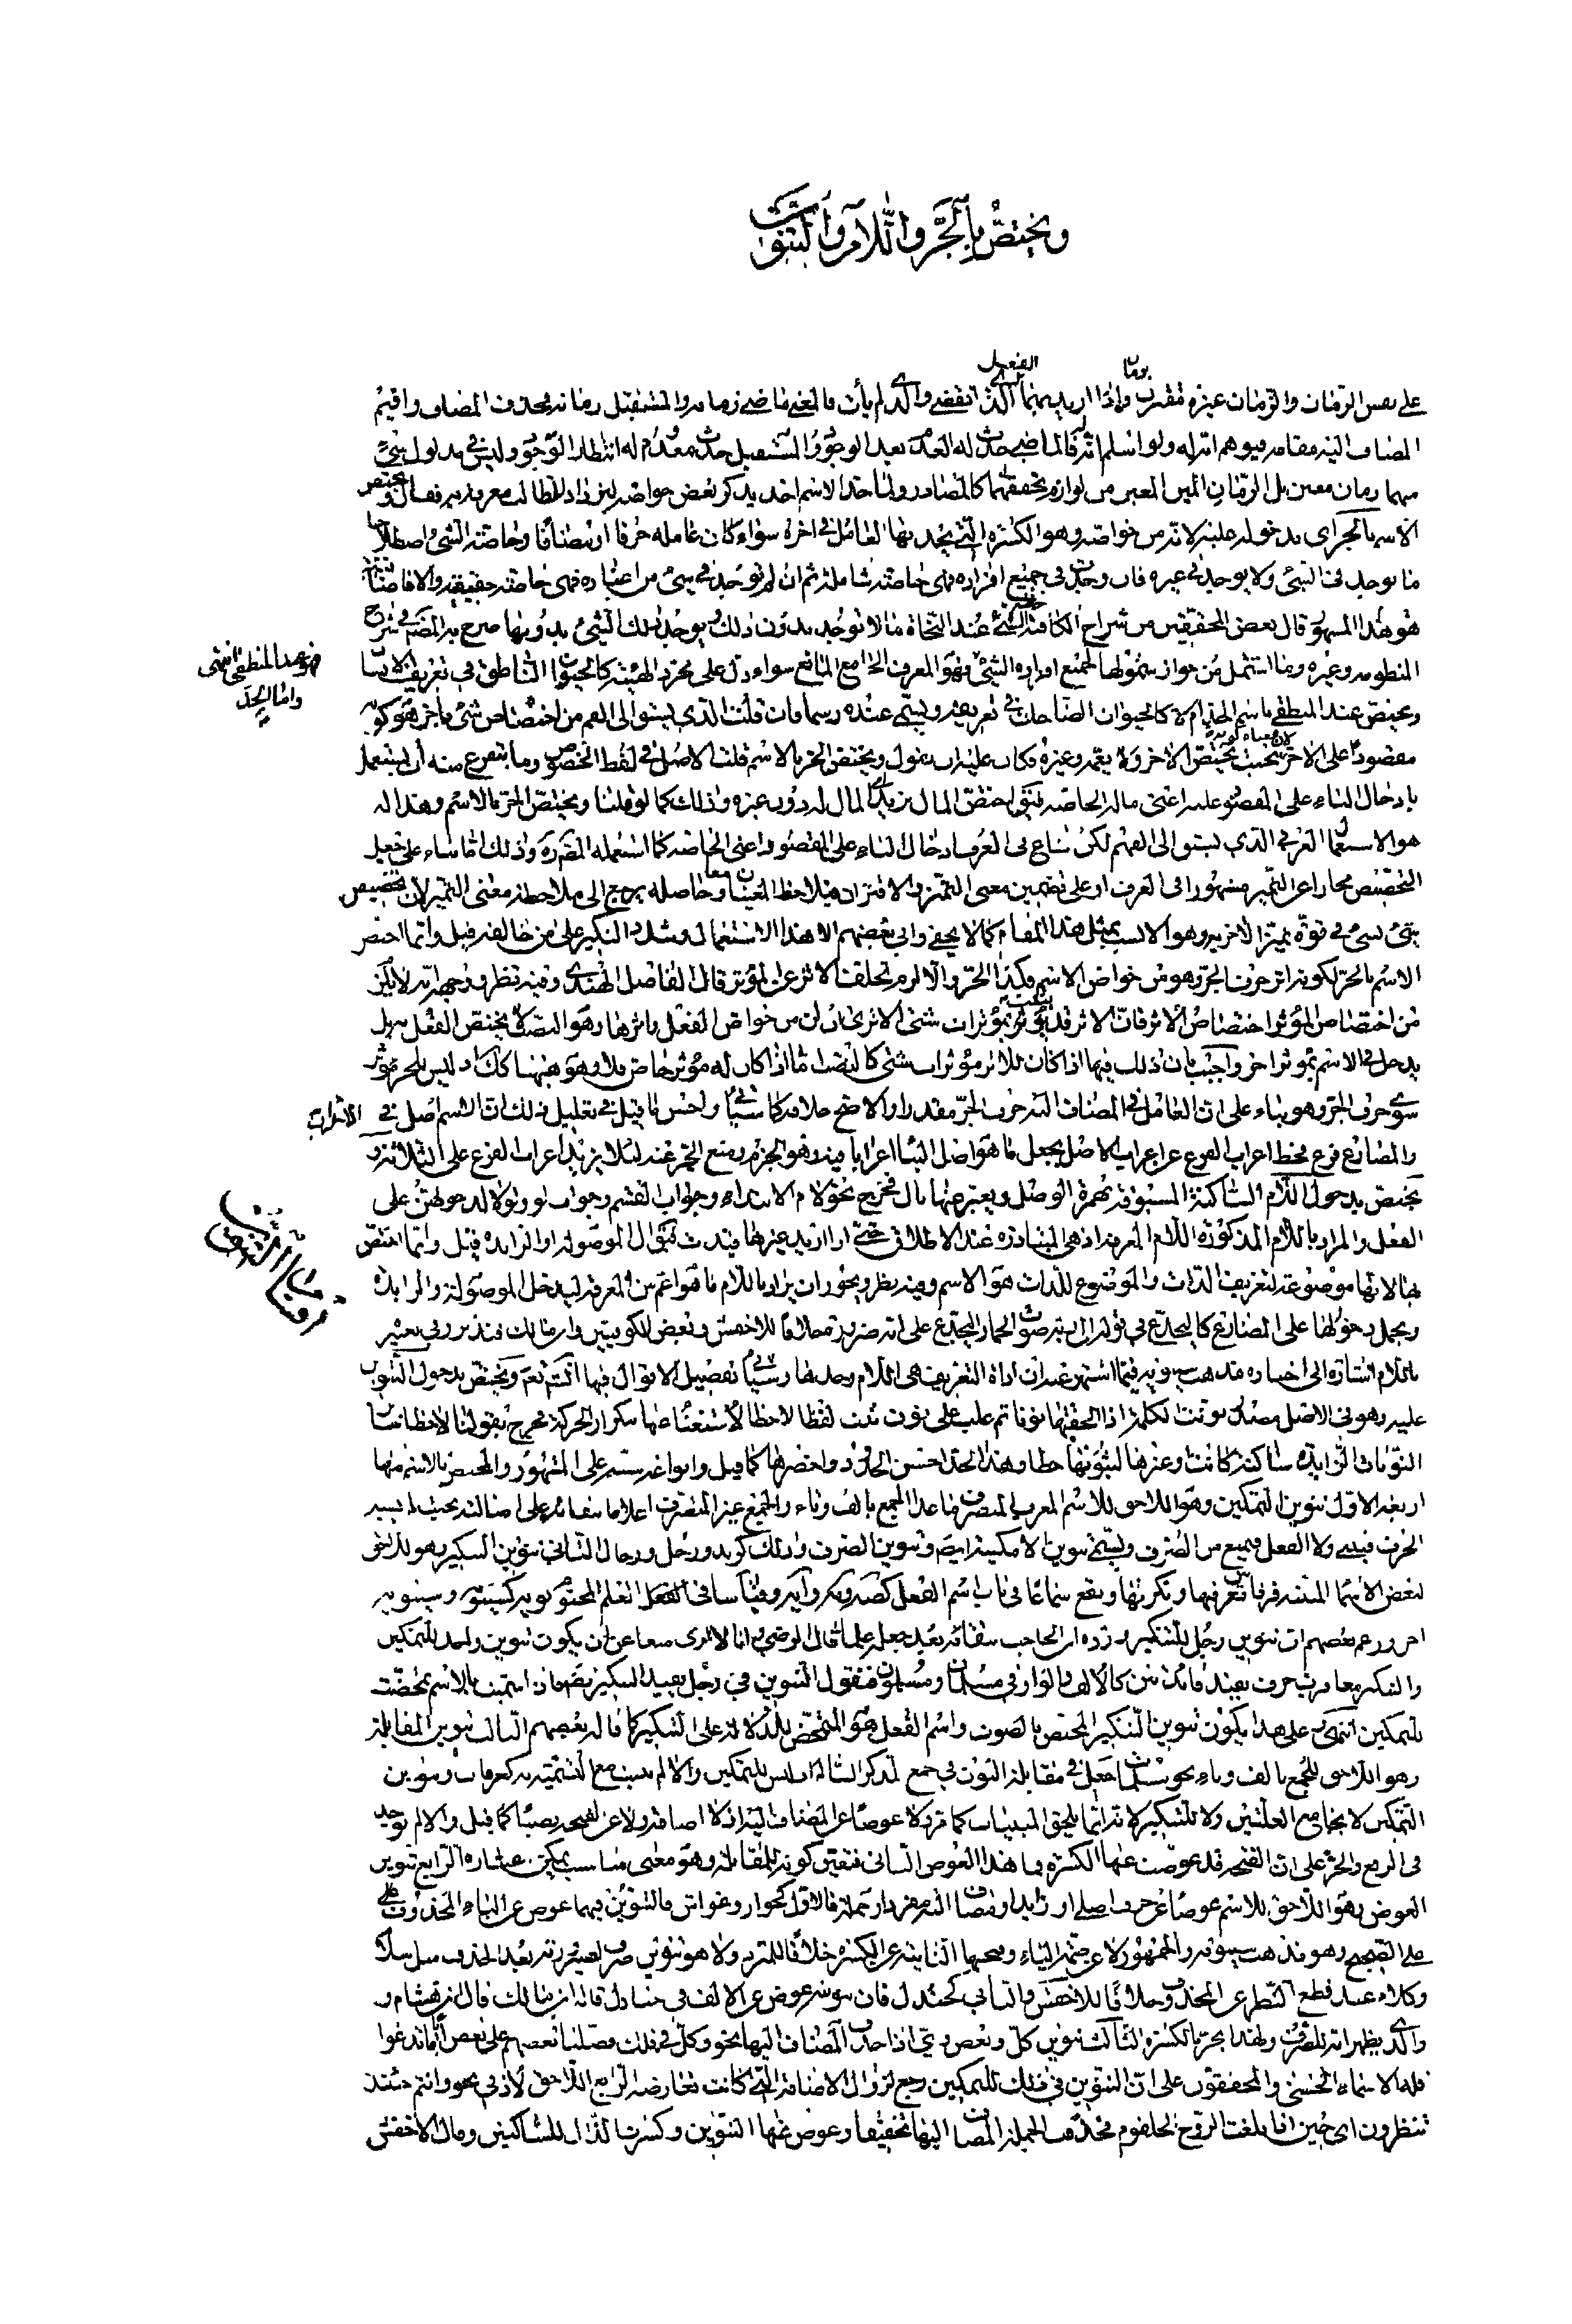 ويختص بالجر واللام والتنوين
على بعض الزمان والزمان غير مقترن واذا اريد بهما الذي انقضى والذي لم يأت فالمعنى ماضي زمانه والمستقبل زمانه فحذف المضاف واقيم
المضاف اليه مقامه فيوهم انه له ولو اسلم فالماضي حدث له العدم بعد الوجود والمستقبل حدث معدوم له انتظار الوجود وليس في مدلول شيء
منهما زمان معين بل الزمان من لوازم تحققهما كالمصادر ولما حد الاسم اخذ يذكر بعض خواصه ليزداد للطالب معرفة به فقال ويختص
الاسم بالجر اي بدخوله عليه لانه من خواصه وهو الكسرة التي يحدثها العامل في اخره سواء كان عامله حرفا او مضافا وخاصة الشيء اصطلاحا
ما يوجد في الشيء ولا يوجد في غيره فان وجدت في جميع افراده فهي خاصة شاملة ثم ان لم توجد في شيء من اغياره فهي خاصة حقيقية والا فاضافية
هو هذا المشهور قال بعض المحققين من شراح الكافية خاصة الشيء عند النحاة ما لا توجد بدون ذلك ويوجد ذلك الشيء بدونها صرح به المصنف في شرح
المنظومة وغيره وما اشتمل من جواز شمولها لجميع افراد الشيء فهو المعرف الجامع المانع سواء دل على مجرد الهيئة كالحيوان الناطق في تعريف الانسان
ويختص عند المنطقي باسم الحد ام لا كالحيوان الضاحك في تعريفه ويسمى عنده رسما فان قلت الذي يسبق الى الفهم من اختصاص شيء بآخر هو كونه
مقصورا على الآخر بحيث يختص الآخر ولا يعمه وغيره فكان عليه ان يقول ويختص الجر بالاسم قلت الاصل في لفظ الخصوص وما يتفرع منه أن يستعمل
بادخال الباء على المقصور عليه اعني ماله الخاصة فيقال اختص المال بزيد اي المال له دون غيره وذلك كما لو قلنا ويختص الجر بالاسم وهذا
هو الاستعمال العرفي الذي يسبق الى الفهم لكن شاع في العرف ادخال الباء على المقصور اعني الخاصة كما استعمله المصنف وذلك اما بناء على جعل
التخصيص مجازا عن التمييز مشهورا في العرف او على تضمين معنى التميز والافتران فيلاحظ المعنيان معا وحاصله يرجع الى ملاحظة معنى التمييز لأن تخصيص
شيء بشيء في قوة تميز الآخر به وهو الانسب بمثل هذا المقام كما لا يخفى وابى بعضهم الا هذا الاستعمال وشدد النكير على من خالفه قيل وانما اختص
الاسم بالجر لكونه اثر حرف الجر وهو من خواص الاسم فكذا الجر والا لزم تخلف الاثر عن المؤثر قال الفاضل الهندي وفيه نظر ووجهه انه لا يلزم
من اختصاص المؤثر اختصاص الاثر فان الاثر قد يثبت بمؤثرات شتى الا ترى ان لن من خواص الفعل واثرها وهو النصب لا يختص الفعل به بل
يدخل في الاسم بمؤثر اخر واجيب بان ذلك فيما اذا كان للاثر مؤثرات شتى كالنصب اما اذا كان له مؤثر خاص فلا وهو ههنا كذلك اذ ليس للجر مؤثر
سوى حرف الجر وهو بناء على ان العامل في المضاف اليه حرف الجر مقدرا والاصح خلافه كما سيأتي واحسن ما قيل في تعليل ذلك ان الاسم اصل في الاعراب
والمضارع فرع فحط اعراب الفرع عن اعراب الاصل بجعل ما هو اصل البناء اعرابا فيه وهو الجزم ومنع الجر عنه لئلا يزيد اعراب الفرع على الثلاثة و
يختص بدخول اللام الساكنة المسبوقة بهمزة الوصل ويعبر عنها بال فخرج نحو لام الابتداء وجواب القسم وجواب لو ولولا لدخولهن على
الفعل والمراد باللام المذكورة اللام المعرفة اذ هي المتبادرة عند الاطلاق حتى اذا اريد غيرها قيدت فيقال الموصولة او الزايدة قيل وانما اختص
بها لانها موضوعة لتعريف الذات والموضوع للذات هو الاسم وفيه نظر ويجوز ان يراد باللام ما هو اعم من المعرفة ليدخل الموصولة والزايدة
ويحمل دخولها على المضارع كاليجدع في قوله صوت الحمار اليجدع على انه ضرورة خلافا للاخفش وبعض الكوفيين وابن مالك فتدبر وفي تعبيره
باللام اشارة الى اختياره مذهب سيبويه فيما اشتهر عنه ان اداة التعريف هي اللام وحدها وسيأتي تفصيل الاقوال فيها اتم نعم ويختص بدخول التنوين
عليه وهو في الاصل مصدر نونت الكلمة اذا الحقتها نونا ثم غلب على نون تثبت لفظا لا خطا لاستغناء عنها بتكرار الحركة فخرج بقولنا لا خطا سائر
النونات الزايدة ساكنة كانت وغيرها لثبوتها خطا وهذا الحد احسن الحدود واخصرها كما قيل وانواعه ستة على المشهور والمختص بالاسم منها
اربعة الاول تنوين التمكين وهو اللاحق للاسم المعرب المنصرف ما عدا الجمع بالف وتاء والجمع غير المنصرف اعلاما ببقائه على اصالته بحيث لم يشبه
الحرف فيبنى ولا الفعل فيمنع من الصرف ويسمى تنوين الامكنية ايضا وتنوين الصرف وذلك كزيد ورجل ورجال الثاني تنوين التنكير وهو اللاحق
لبعض الاسماء المبنية فرقا بين تعريفها وتنكيرها ويقع سماعا في باب اسم الفعل كصه ومه وايه وقياسا في العلم المختوم بويه كسيبويه وسيبويه
آخر وزعم بعضهم ان تنوين رجل للتنكير ورده ابن الحاجب ببقائه بعد جعله علما قال الرضي وانا لا ارى منعا من ان يكون تنوين واحد للتمكين
والتنكير معا فرب حرف يفيد فائدتين كالالف والواو في مسلمان ومسلمون فنقول التنوين في رجل يفيد التنكير ايضا فاذا سميت بالاسم تمحضت
للتمكين انتهى وعلى هذا يكون تنوين التنكير المختص بالصوت واسم الفعل هو المتمحض للدلالة على التنكير كما قاله بعضهم الثالث تنوين المقابلة
وهو اللاحق للجمع بالف وتاء نحو مسلمات جعل في مقابلة النون في جمع المذكر السالم اذ ليس للتمكين والا لم يثبت مع التسمية به كعرفات وتنوين
التمكين لا يجامع العلتين ولا للتنكير لانه انما يلحق المبنيات كما مر ولا عوضا عن المضاف اليه اذ لا اضافة ولا عن الفتحة نصبا كما قيل والا لم يوجد
في الرفع والجر على ان الفتحة قد عوضت عنها الكسرة فما هذا العوض الثاني فتعين كونه للمقابلة وهو معنى مناسب يمكن اعتباره الرابع تنوين
العوض وهو اللاحق للاسم عوضا عن حرف اصلي او زايد او مضاف اليه مفرد او جملة فالاول كجوار وغواش فالتنوين فيهما عوض عن الياء المحذوفة
على الصحيح وهو مذهب سيبويه والجمهور لا عن ضمة الياء وفتحها النائبة عن الكسرة خلافا للمبرد ولا هو تنوين صرف لصيرورته بعد الحذف مثل سلام
وكلام عند قطع النظر عن المحذوف خلافا للاخفش والثاني كجندل فان تنوينه عوض عن الالف في جنادل قاله ابن مالك قال ابن هشام و
والذي يظهر انه للصرف ولهذا يجر بالكسرة الثالث تنوين كل وبعض واي اذا حذف المضاف اليها نحو وكل في فلك فضلنا بعضهم على بعض أيا ما تدعوا
فله الاسماء الحسنى والمحققون على ان التنوين في ذلك للتمكين رجع لزوال الاضافة التي كانت تعارضه الرابع اللاحق لاذ في نحو وانتم حينئذ
تنظرون اي حين اذ بلغت الروح الحلقوم فحذفت الجملة المضاف اليها تخفيفا وعوض عنها التنوين وكسرت الذال للساكنين وقال الاخفش